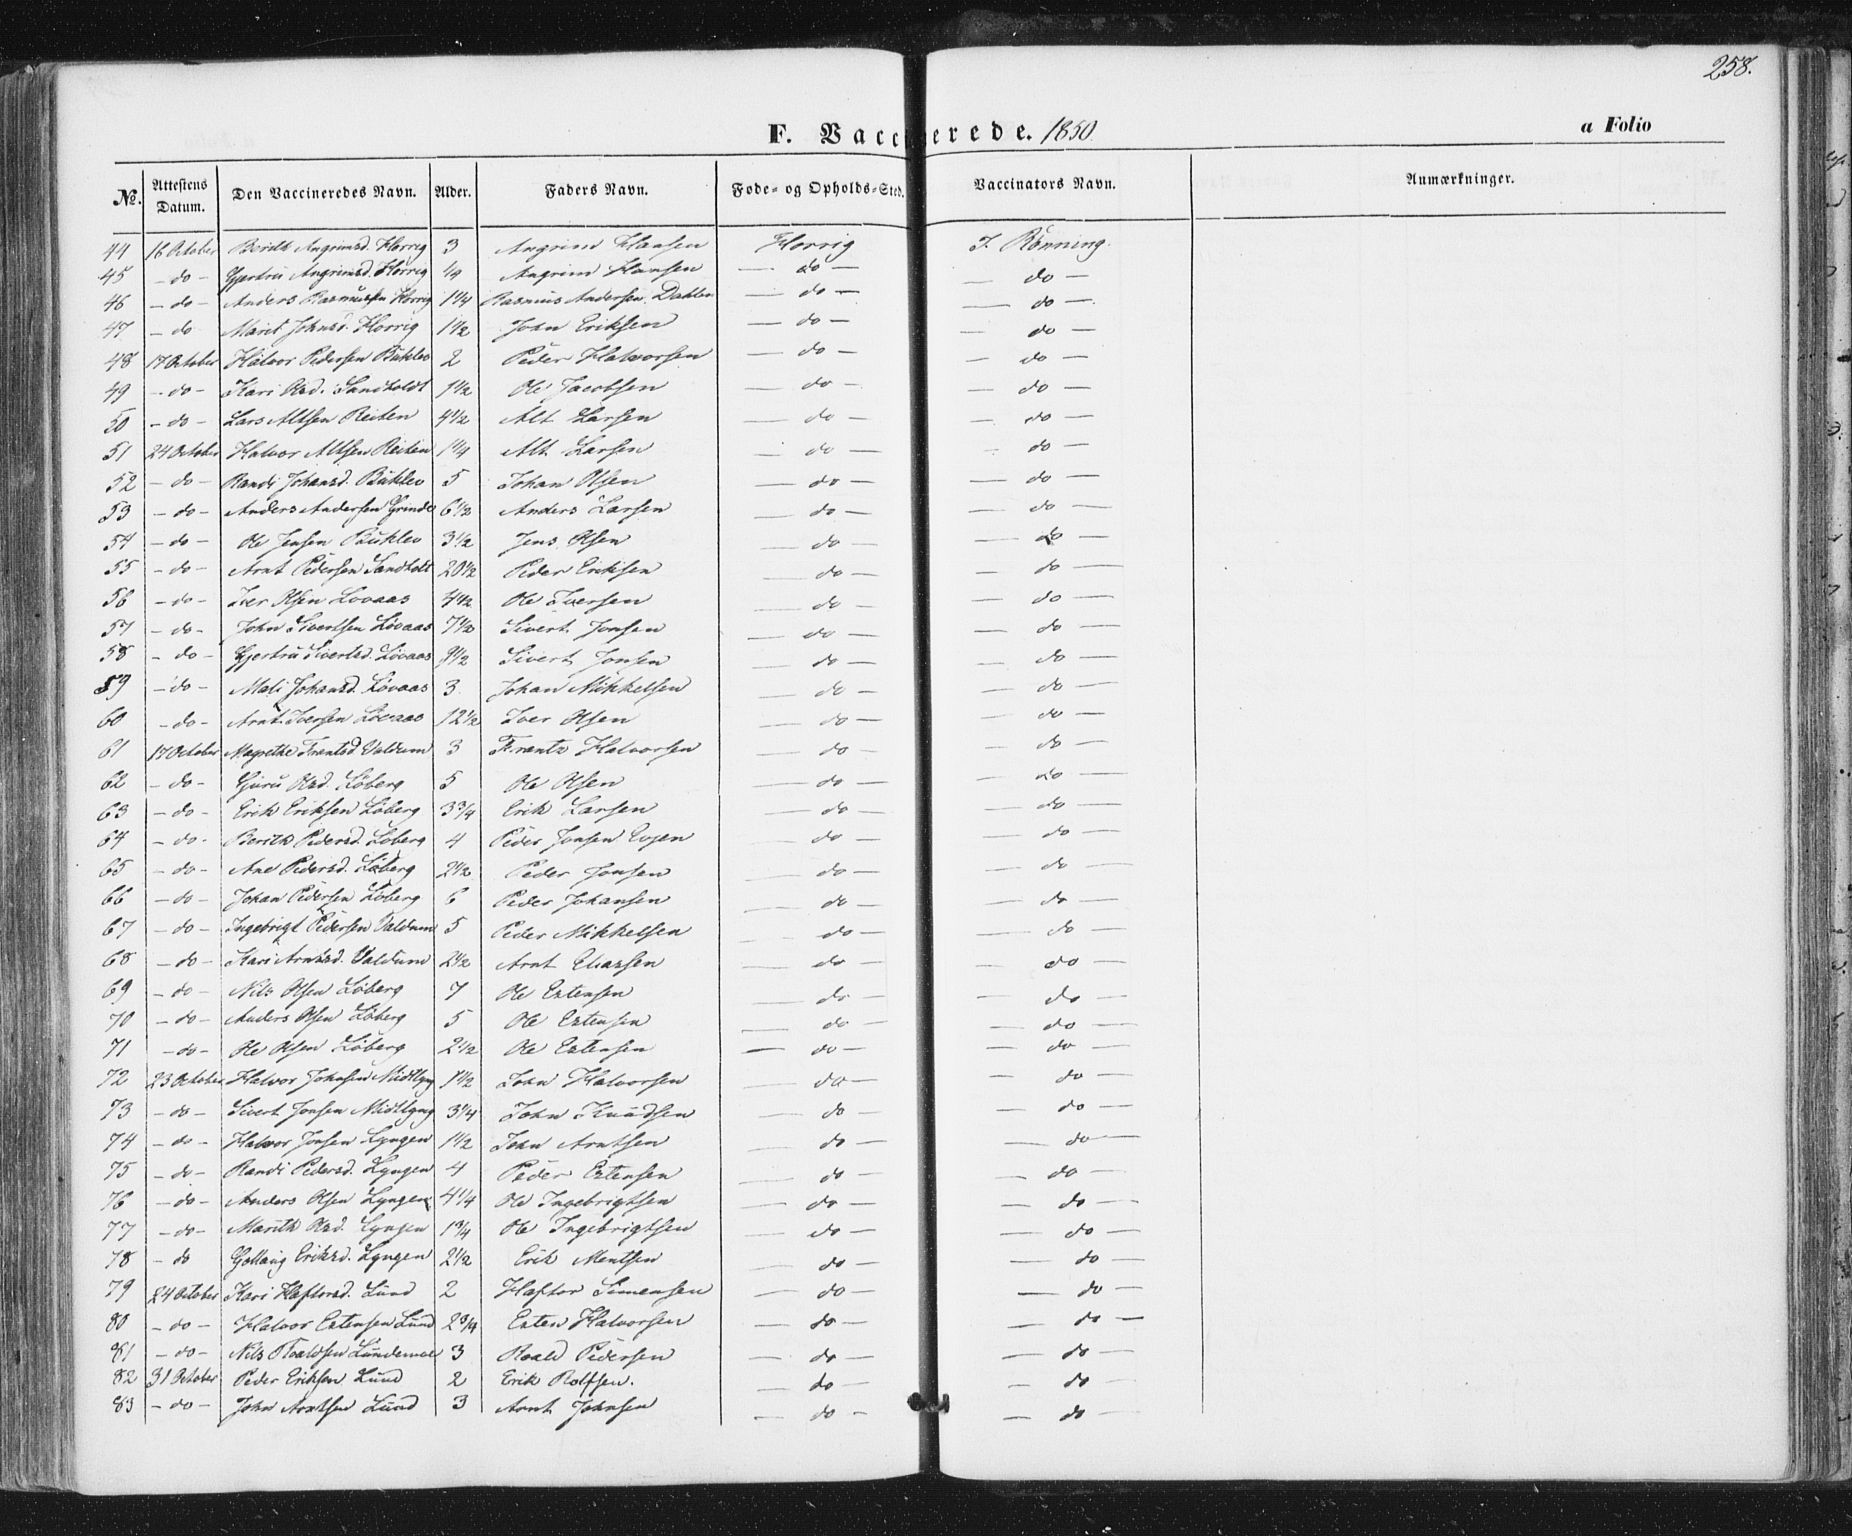 258.
F. Vaccinerede. 1850
a Folio
No. Attestens Datum. Den Vaccineredes Navn. Alder. Faders Navn. Føde- og Opholds-Sted. Vaccinators Navn. Anmærkninger.
44 16 October Berith Angrimsd. Horrig 3 Angrim Hansen Horrig J. Rønning.
45 - do - Gjertru Angrimsd. Horrig 1/4 Angrim Hansen - do - - do -
46 - do - Anders Rasmussen Horrig 1 1/4 Rasmus Andersen Dahlen - do - - do -
47 - do Marit Johnsd. Horrig 1 1/2 John Eriksen - do - - do -
48 17 October Halvor Pedersen Buklev 2 Peder Halvorsen - do - - do -
49 - do - Kari Olsd. Sandholdt 1 1/2 Ole Jacobsen - do - - do -
50 - do - Lars Altsen Reiten 4 1/2 Alt Larsen - do - - do -
51 24 October Halvor Altsen Reiten 1 1/4 Alt Larsen - do - - do -
52 - do - Randi Johansd. Buklev 5 Johan Olsen - do - - do -
53 - do - Anders Andersen Grinde 6 1/2 Anders Larsen - do - - do -
54 - do - Ole Jensen Buklev 3 1/2 Jens Olsen - do - - do -
55 - do - Arnt Pedersen Sandholt 20 1/2 Peder Eriksen - do - - do -
56 - do - Iver Olsen Lovaas 4 1/2 Ole Iversen - do - - do -
57 - do - John Sivertsen Løvaas 7 1/2 Sivert Jonsen - do - - do -
58 - do - Gjertru Sivertsd. Løvaas 9 1/2 Sivert Jonsen - do - - do -
59 - do - Mali Johansd. Løvaas 3 Johan Mikkelsen - do - - do -
60 - do - Arnt Iversen Løvaas 12 1/2 Iver Olsen - do - - do -
61 17 October Magrethe Frantsd Valdum 3 Frantz Halvorsen - do - - do -
62 - do - Guru Olsd. Løberg 5 Ole Olsen - do - - do -
63 - do - Erik Eriksen Løberg 3 3/4 Erik Larsen - do - - do -
64 - do - Berith Pedersd. Løberg 4 Peder Jonsen Evjen - do - - do -
65 - do - Ane Pedersd. Løberg 2 1/2 Peder Jonsen - do - - do -
66 - do - Johan Pedersen Løberg 6 Peder Johansen - do - - do -
67 - do - Ingebrigt Pedersen Valdum 5 Peder Mikkelsen - do - - do -
68 - do - Kari Arntsd. Valdum 2 1/2 Arnt Eliasen - do - - do -
69 - do - Nils Olsen Løberg 7 Ole Estensen - do - - do -
70 - do - Anders Olsen Løberg 5 Ole Estensen - do - - do -
71 - do - Ole Olsen Løberg 2 1/2 Ole Estensen - do - - do -
72 23 October Halvor Johnsen Midtlyng 1 1/2 John Halvorsen - do - - do -
73 - do - Sivert Jonsen Midtlyng 3 1/4 John Knudsen - do - - do -
74 - do - Halvor Jonsen Lyngen 1 1/2 John Arntsen - do - - do -
75 - do - Randi Pedersd. Lyngen 4 Peder Estensen - do - - do -
76 - do - Anders Olsen Lyngen 4 1/4 Ole Ingebrigtsen - do - - do -
77 - do - Marith Olsd. Lyngen 1 3/4 Ole Ingebrigtsen - do - - do -
78 - do Gollaug Eriksd. Lyngen 2 1/2 Erik Mentsen - do - - do -
79 24 October Kari Haftorsd. Lund 2 Haftor Simensen - do - - do -
80 - do - Halvor Estensen Lund 2 3/4 Esten Halvorsen - do - - do -
81 - do - Nils Roaldsen Lundemoe 3 Roald Pedersen - do - - do -
82 31 October Peder Eriksen Lund 2 Erik Rolfsen. - do - - do -
83 - do - John Arntsen Lund 3 Arnt Johnsen - do - - do -